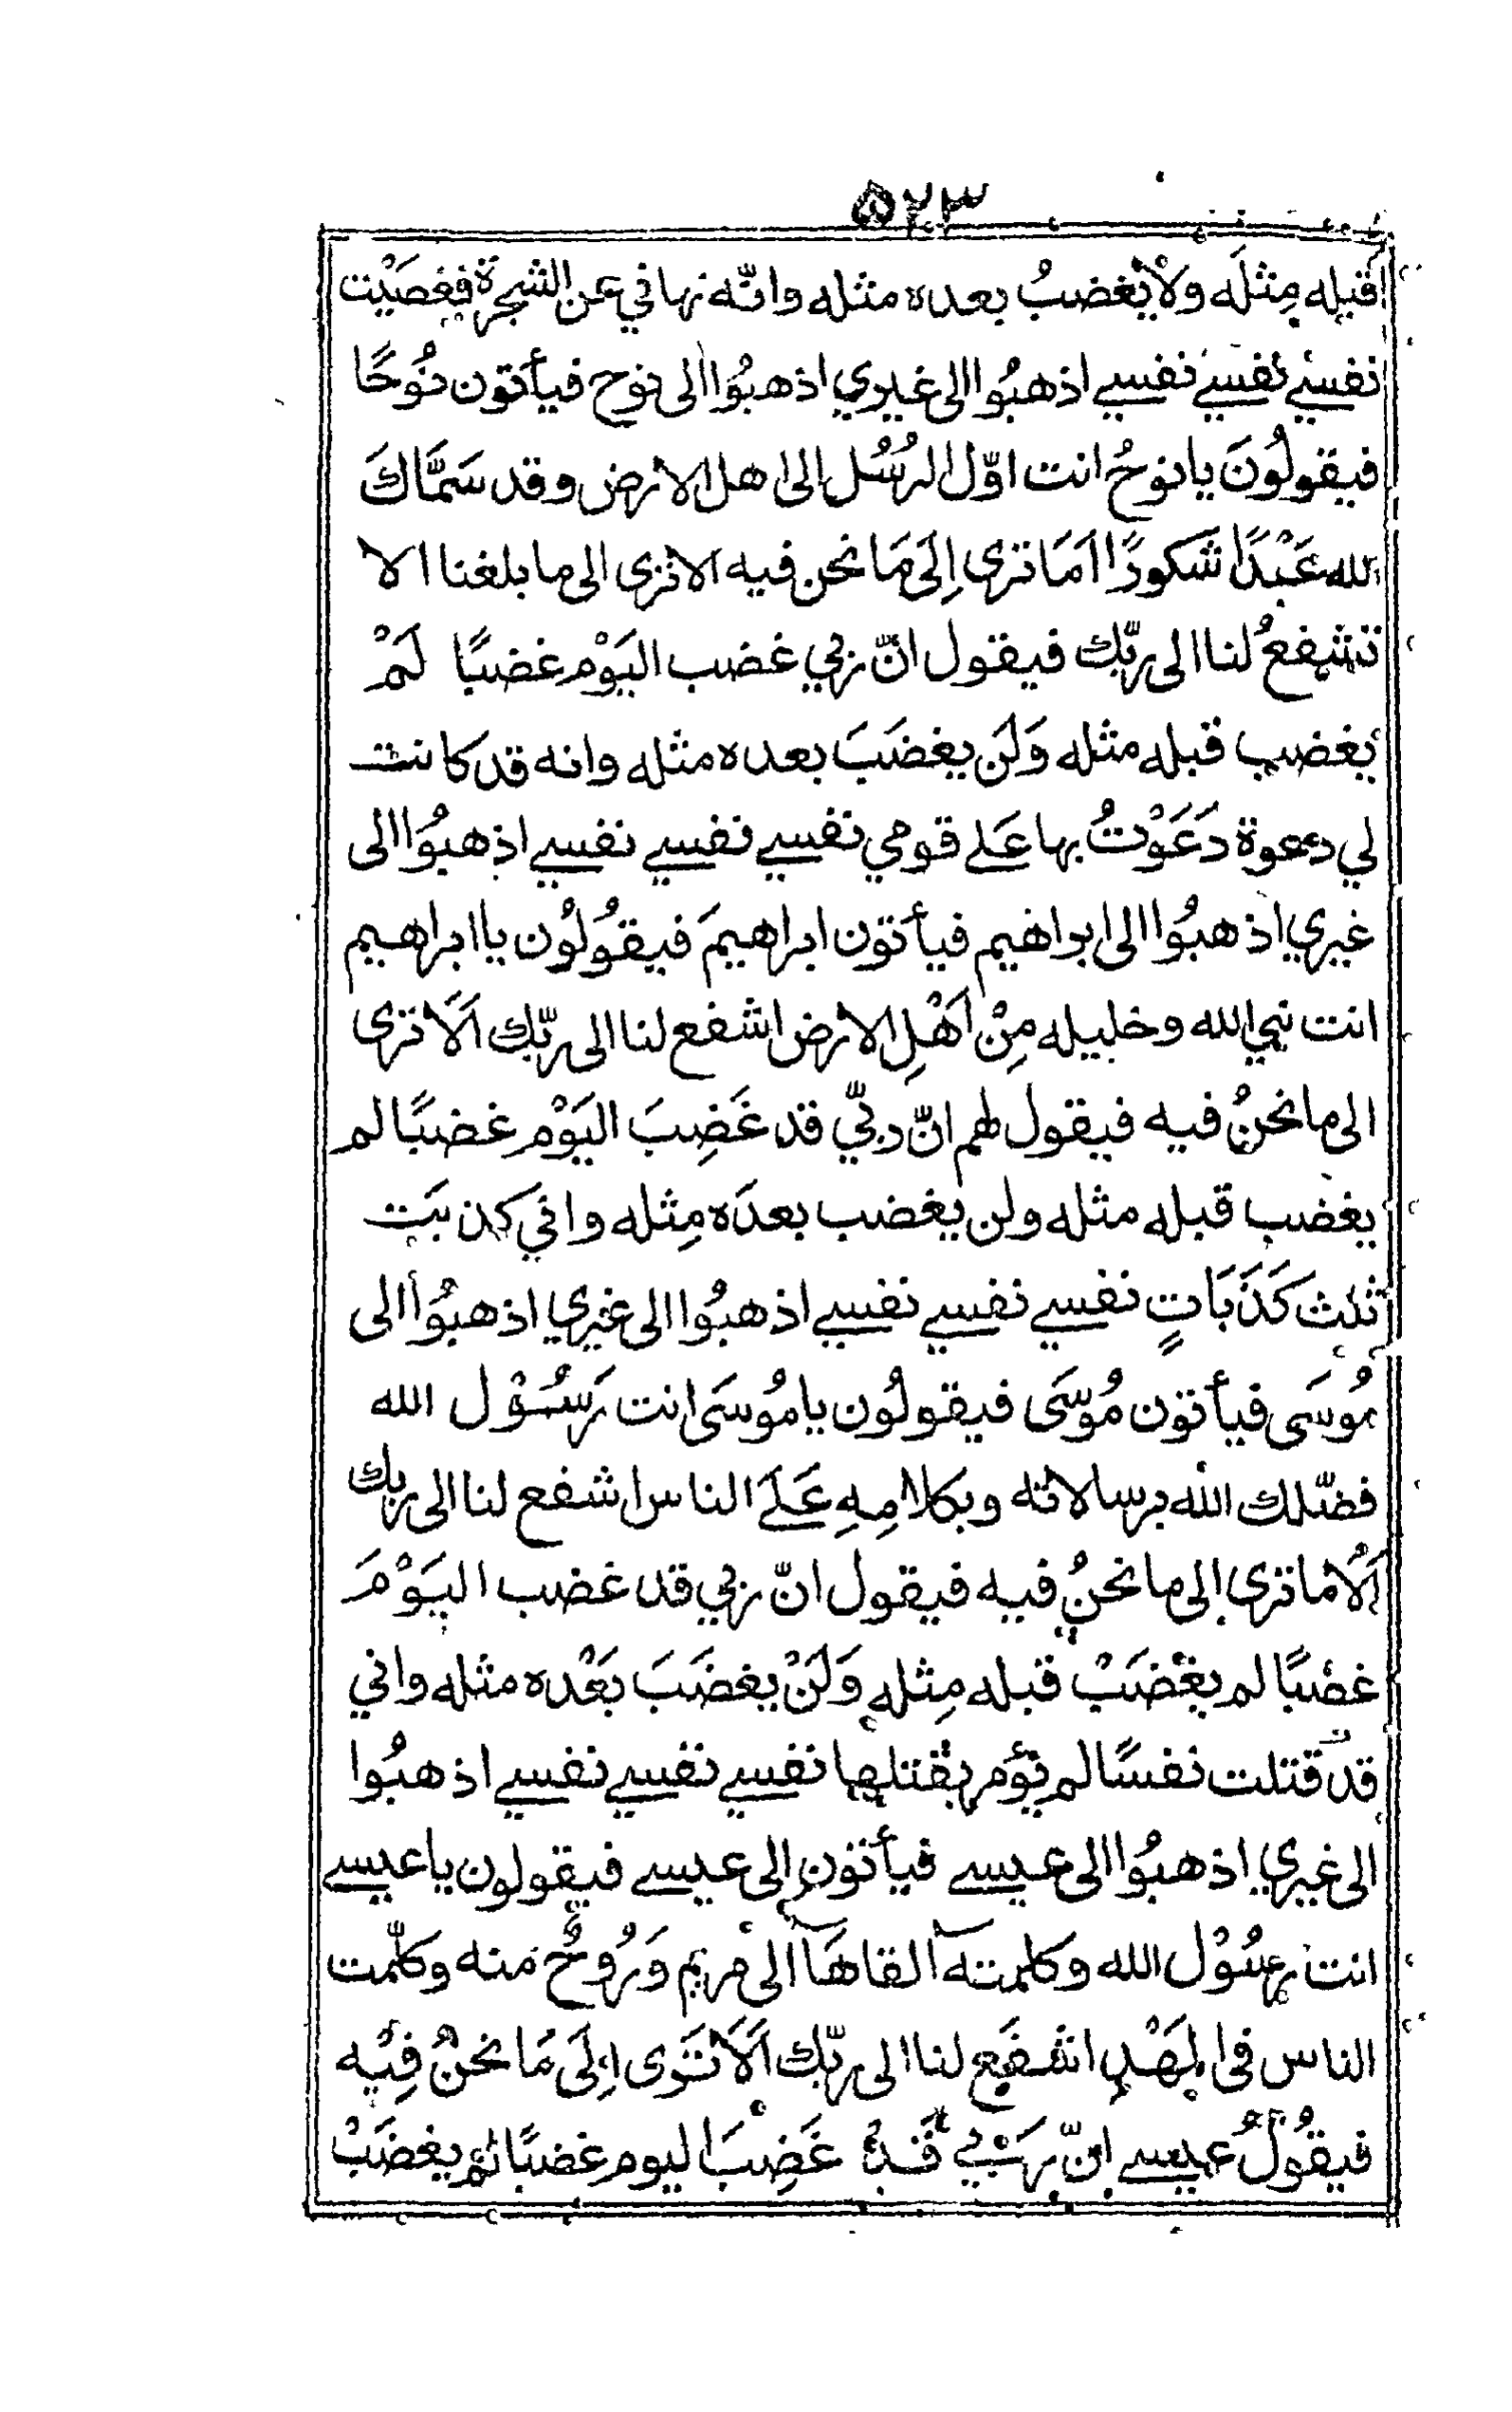 ۵۲۳
قبله مِثلَه ولا يغضبُ بعده مثله وانّه نهاني عن الشجرة فعصَيْت
نفسي نفسي نفسي اذهبُوا الى غيري اذهبُوا الى نوح فيأتون نُوحًا
فيقولُونَ يا نوحُ انت اوّل الرُسُل الى اهل الارض وقد سَمَّاكَ
الله عَبْدًا شكورًا امَا ترى اِلَى مَا نحن فيه الا ترى الى ما بلغنا الا
تشفعُ لنا الى ربّك فيقول انّ ربي غضب اليَوْم غضبًا لَمْ
يغضب قبله مثله وَلَن يغضَبَ بعده مثله وانه قد كانت
لي دعوة دَعَوْتُ بها عَلى قومي نفسي نفسي نفسي اذهبُوا الى
غيري اذهبُوا الى ابراهيم فيأتون ابراهيمَ فيقُولُون يا ابراهيم
انت نبي الله وخليله مِنْ اَهْلِ الارض اشفع لنا الى ربّك اَلَا ترى
الى ما نحنُ فيه فيقول لهم انّ ربّي قد غَضِبَ اليَوْم غضبًا لم
يغضب قبله مثله ولن يغضب بعدَه مِثله واني كذبَت
ثلث كَذَبَاتٍ نفسي نفسي نفسي اذهبُوا الى غيري اذهبُوا الى
مُوسَى فيأتون مُوسَى فيقولُون يا مُوسَى انت رَسُوْل الله
فضّلك الله برسالاته وبكلامِهِ عَلَى الناس اشفع لنا الى ربك
اَلَا ما ترى الى ما نحنُ فيه فيقول انّ ربي قد غضب اليَوْمَ
غضبًا لم يغضَبْ قبله مِثله وَلَنْ يغضَبَ بَعْده مثله واني
قد قتلت نفسًا لم نؤمر بقتلها نفسي نفسي نفسي اذهبُوا
الى غيري اذهبُوا الى عيسى فيأتون الى عيسى فيقولون يا عيسى
انت رسُوْل الله وكلمته القاهَا الى مريم وَرُوحٌ منه وكلّمت
الناس في المَهْد اشفَع لنا الى ربّك اَلَا تَرَى اِلَى مَا نحنُ فِيْه
فيقُولُ عيسى اِنّ رَبّي قَدْ غَضِبَ اليوم غضبًا لم يغضَبْ